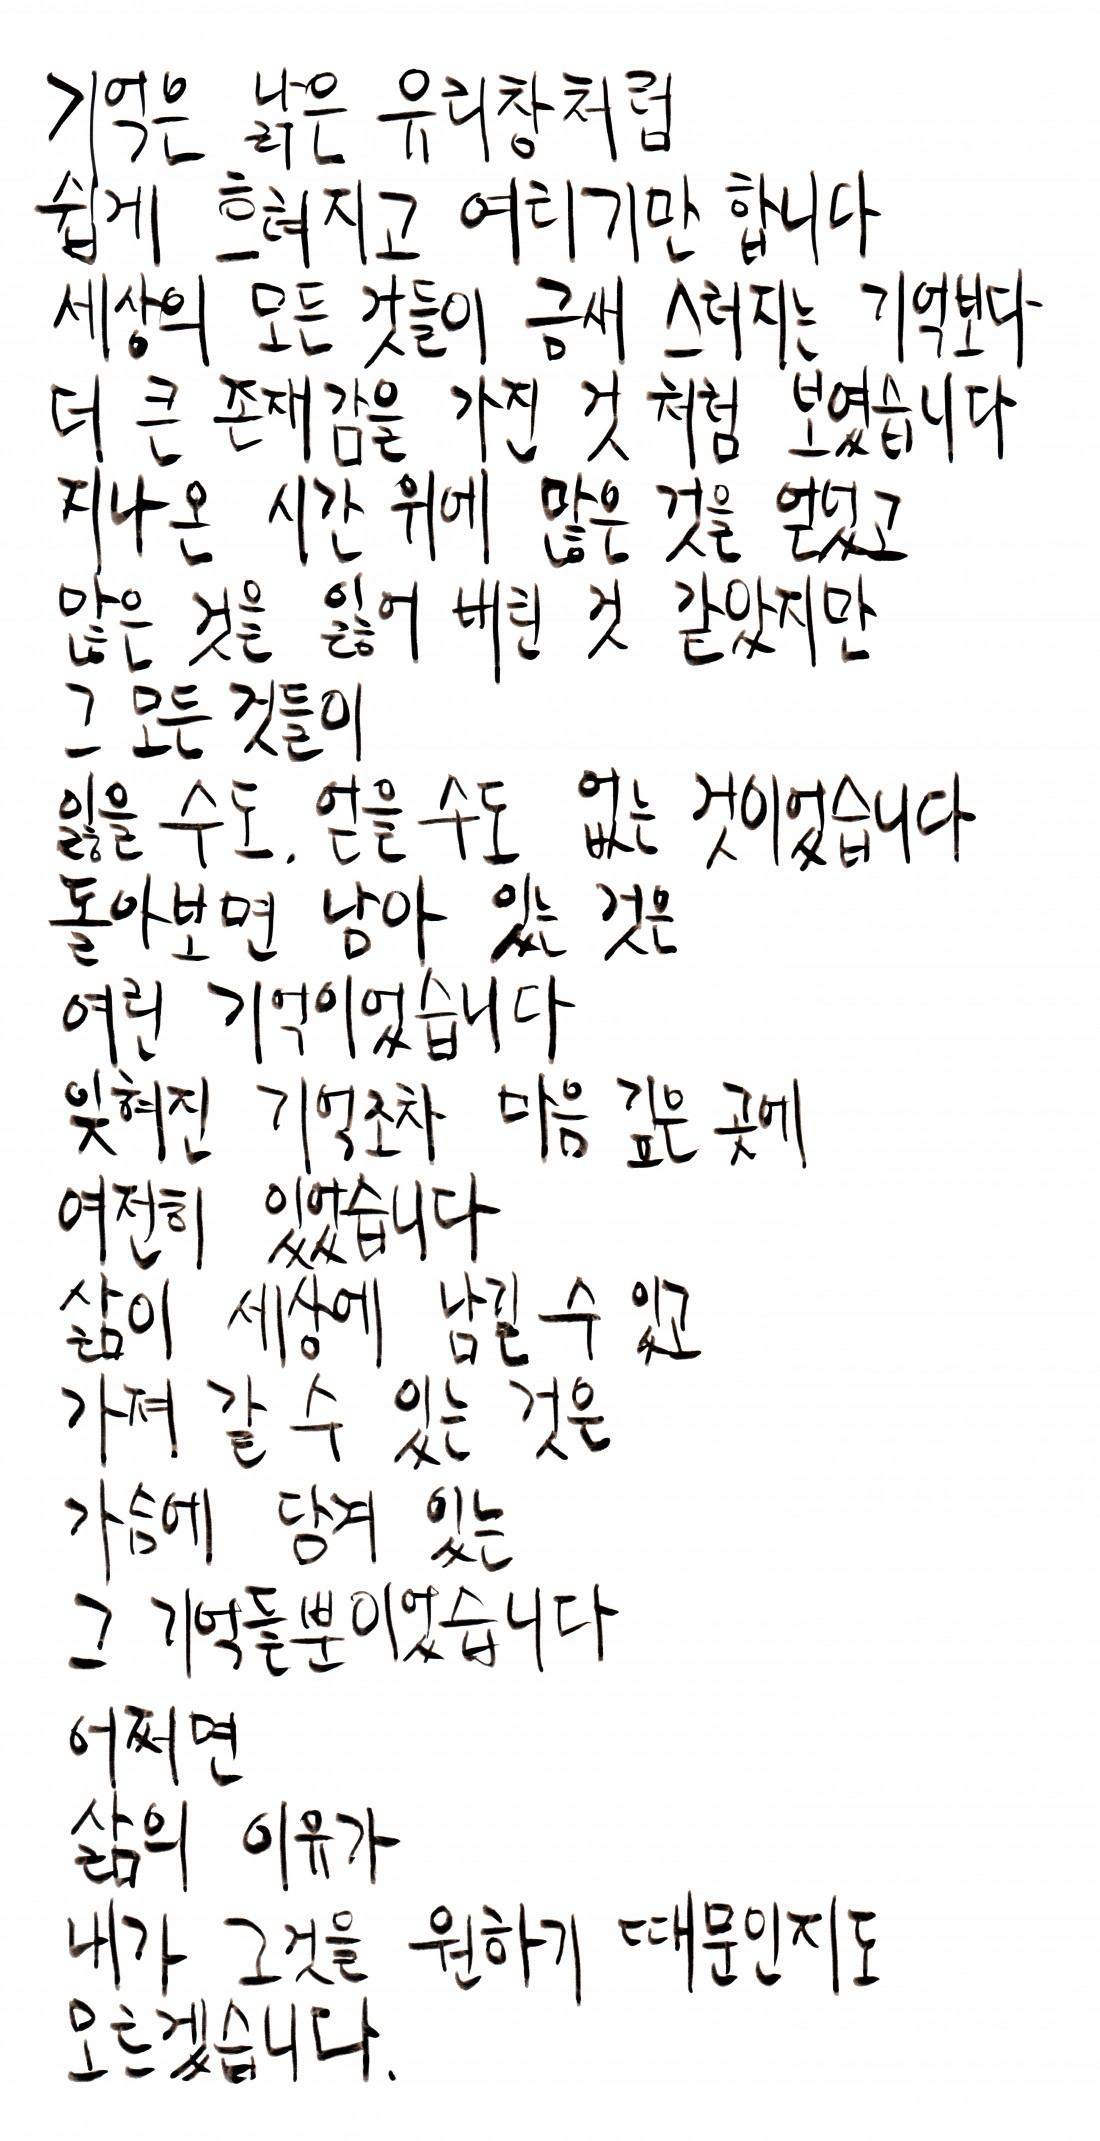 기억은 낡은 유리창처럼
쉽게 흐려지고 여리기만 합니다
세상의 모든 것들이 금새 스러지는 기억보다
더 큰 존재감을 가진 것 처럼 보였습니다
지나온 시간 위에 많은 것을 얻었고
많은 것을 잃어 버린 것 같았지만
그 모든 것들이
잃을 수도, 얻을 수도 없는 것이었습니다
돌아보면 남아 있는 것은
여린 기억이었습니다
잊혀진 기억조차 마음 깊은 곳에
여전히 있었습니다
삶이 세상에 남길 수 있고
가져 갈 수 있는 것은
가슴에 담겨 있는
그 기억들뿐이었습니다
어쩌면
삶의 이유가
내가 그것을 원하기 때문인지도
모르겠습니다.